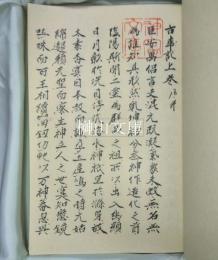 古事記上卷 并序
臣安萬侶言夫混元既凝氣象未效無名無
為誰知其形然乾坤初分參神作造化之首
陰陽斯開二靈為群品之祖所以出入幽顯
日月彰於洗目浮沈海水神祇呈於滌身故
太素杳冥因本教而識孕土產嶋之時元始
綿邈賴先聖而察生神立人之世寔知懸鏡
吐珠而百王相續喫釼切蛇以万神蕃息與